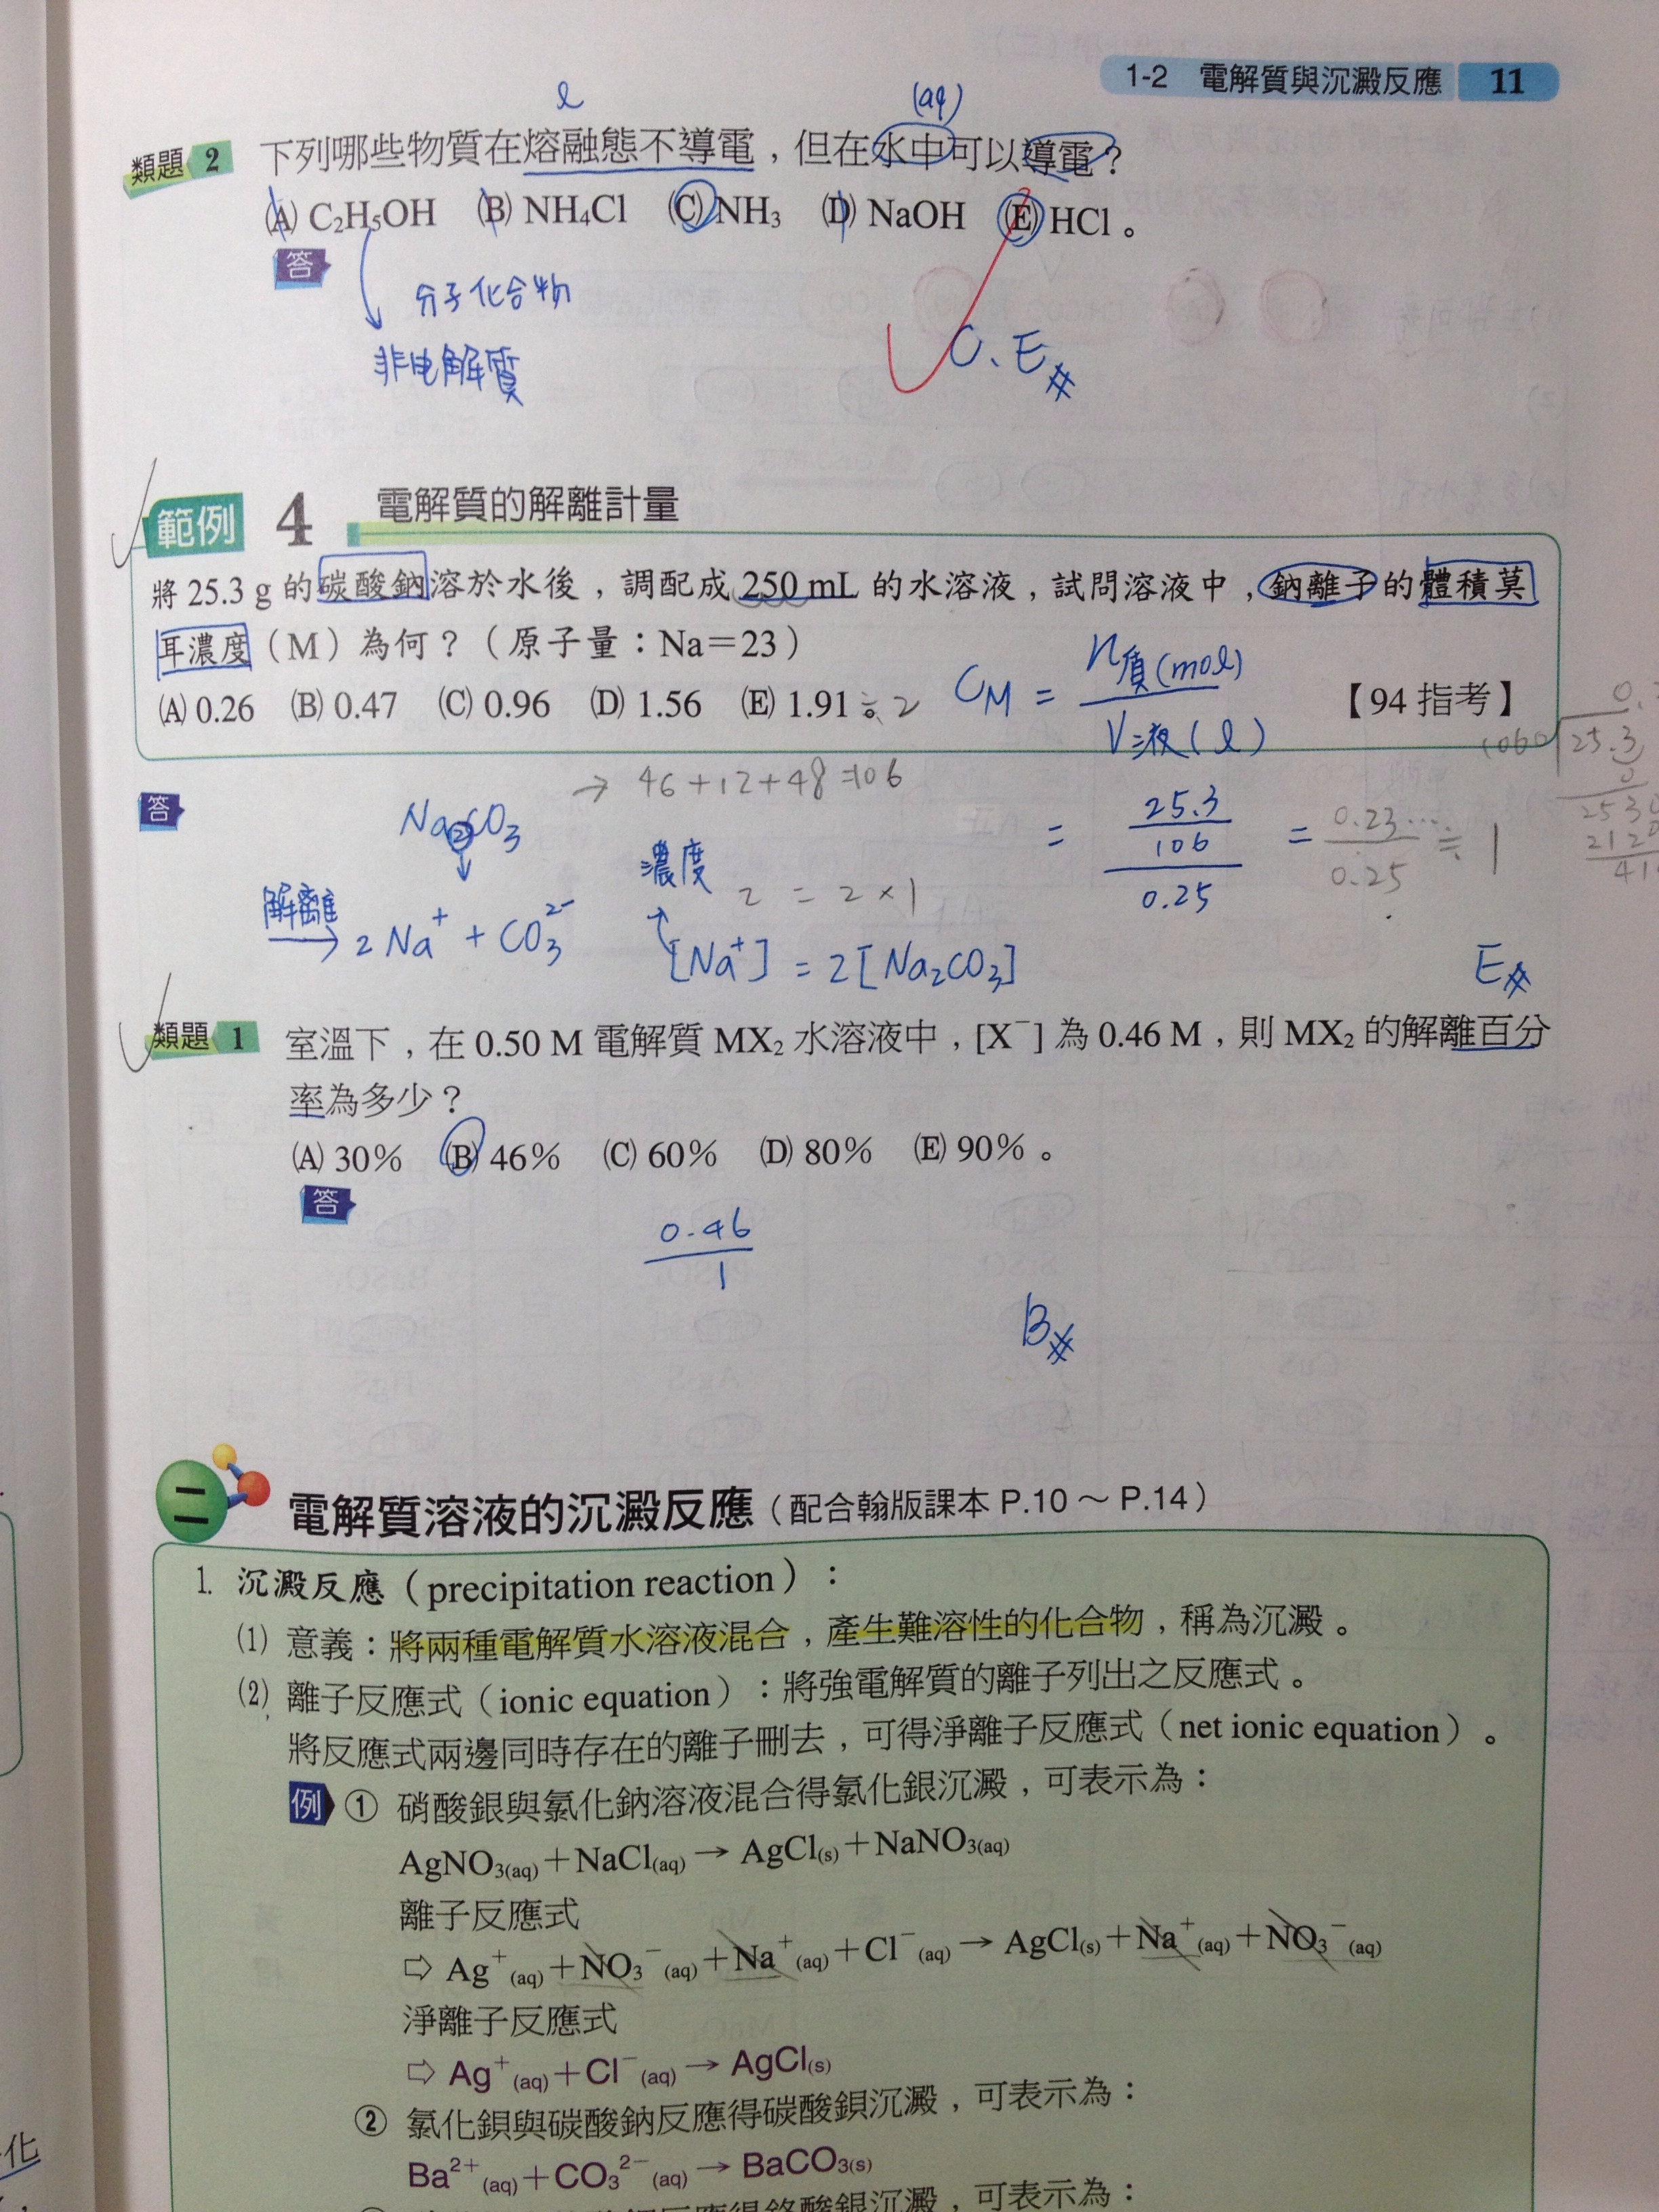 1-2 電解質與沉澱反應 11
l (aq)
類題 2 下列哪些物質在熔融態不導電，但在水中可以導電？
(A) C₂H₅OH (B) NH₄Cl (C) NH₃ (D) NaOH (E) HCl。
答
分子化合物
非电解質
C、E#
範例 4 電解質的解離計量
將 25.3 g 的碳酸鈉溶於水後，調配成 250 mL 的水溶液，試問溶液中，鈉離子的體積莫
耳濃度（M）為何？（原子量：Na＝23）
(A) 0.26 (B) 0.47 (C) 0.96 (D) 1.56 (E) 1.91。≒2 【94 指考】
C_M = n質(mol) / V液(l)
答
→ 46+12+48=106
Na₂CO₃
= 25.3/106 / 0.25 = 0.23… / 0.25 ≒ 1
25.3
0
2530
212
濃度 2 = 2×1
解離→ 2Na⁺ + CO₃²⁻
[Na⁺] = 2[Na₂CO₃]
E#
類題 1 室溫下，在 0.50 M 電解質 MX₂ 水溶液中，[X⁻] 為 0.46 M，則 MX₂ 的解離百分
率為多少？
(A) 30% (B) 46% (C) 60% (D) 80% (E) 90%。
答
0.46 / 1
B#
二 電解質溶液的沉澱反應（配合翰版課本 P.10～P.14）
1. 沉澱反應（precipitation reaction）：
(1) 意義：將兩種電解質水溶液混合，產生難溶性的化合物，稱為沉澱。
(2) 離子反應式（ionic equation）：將強電解質的離子列出之反應式。
將反應式兩邊同時存在的離子刪去，可得淨離子反應式（net ionic equation）。
例 ① 硝酸銀與氯化鈉溶液混合得氯化銀沉澱，可表示為：
AgNO₃(aq)＋NaCl(aq) → AgCl(s)＋NaNO₃(aq)
離子反應式
⇨ Ag⁺(aq)＋NO₃⁻(aq)＋Na⁺(aq)＋Cl⁻(aq) → AgCl(s)＋Na⁺(aq)＋NO₃⁻(aq)
淨離子反應式
⇨ Ag⁺(aq)＋Cl⁻(aq) → AgCl(s)
② 氯化鋇與碳酸鈉反應得碳酸鋇沉澱，可表示為：
Ba²⁺(aq)＋CO₃²⁻(aq) → BaCO₃(s)
反應得鉻酸銀沉澱，可表示為：
化